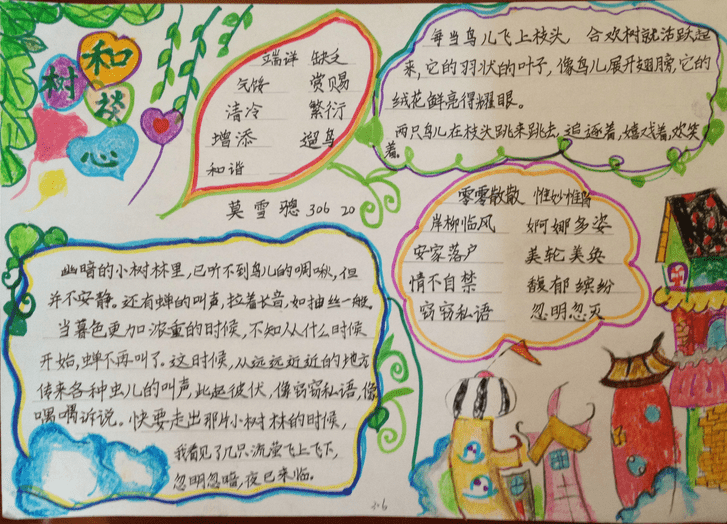 和
树
谈
心
端详 缺乏
气馁 赏赐
清冷 繁衍
增添 遛鸟
和谐
莫雪聪 306 20
每当鸟儿飞上枝头 合欢树就活跃起
来,它的羽状的叶子,像鸟儿展开翅膀,它的
绒花鲜亮得耀眼。
两只鸟儿在枝头跳来跳去,追逐着,嬉戏着,欢笑
着。
零零散散 惟妙惟肖
岸柳临风 婀娜多姿
安家落户 美轮美奂
情不自禁 馥郁缤纷
窃窃私语 忽明忽灭
幽暗的小树林里,已听不到鸟儿的啁啾,但
并不安静。还有蝉的叫声,拉着长音,如抽丝一般。
当暮色更加浓重的时候,不知从什么时候
开始,蝉不再叫了。这时候,从远远近近的地方
传来各种虫儿的叫声,此起彼伏,像窃窃私语,像
喁喁诉说。快要走出那片小树林的时候,
我看见了几只流萤飞上飞下,
忽明忽暗,夜已来临。
306